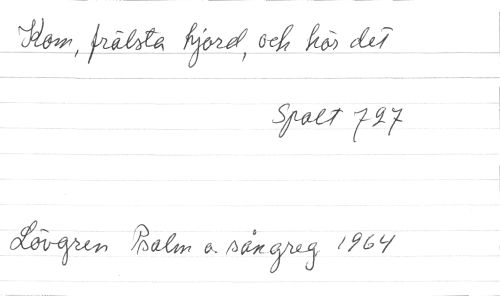 Kom, frälsta hjord, och hör det
Spalt 727
Lövgren Psalm o. sångreg 1964